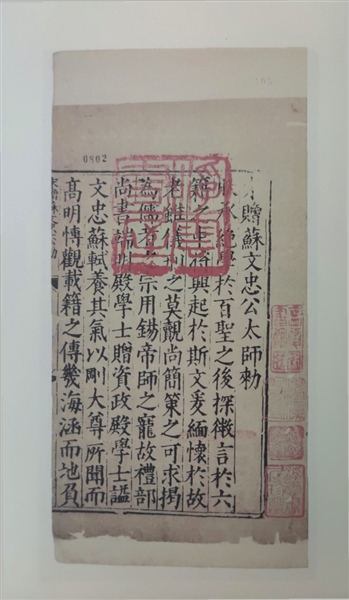 0802
贈蘇文忠公太師勅
承絕學於百聖之後探微言於六
籍之中將興起於斯文爰緬懷於故
老雖儀刑之莫覿尚簡策之可求揭
為儒者之宗用錫帝師之寵故禮部
尚書端明殿學士贈資政殿學士謚
文忠蘇軾養其氣以剛大尊所聞而
高明博觀載籍之傳幾海涵而地負